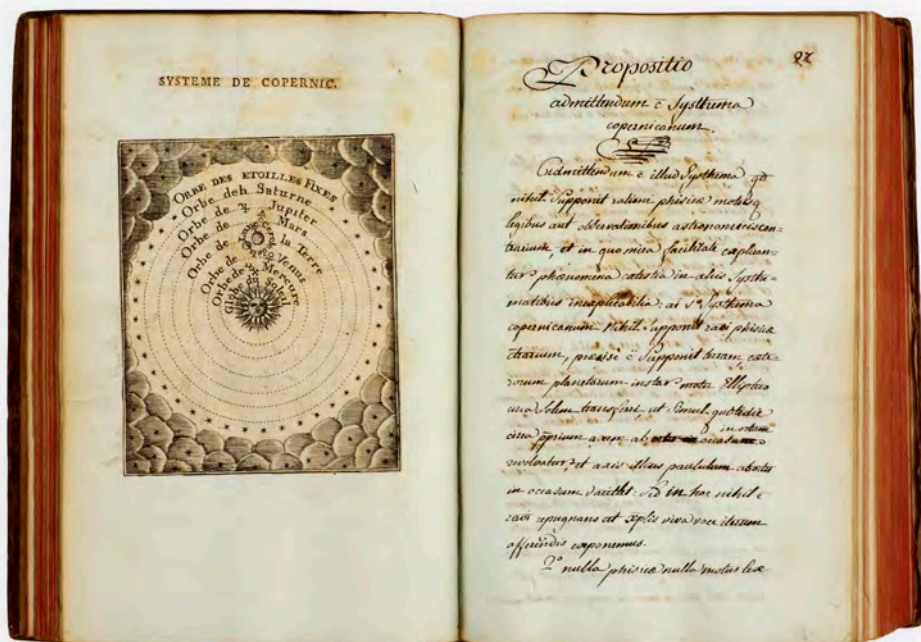 SYSTEME DE COPERNIC.
ORBE DES ETOILLES FIXES
Orbe de ♄ Saturne
Orbe de ♃ Jupiter
Orbe de Mars
Orbe de la Terre
Orbe de Venus
Orbe de Mercure
Globe du Soleil
Propositio
admittendum ē Systhema
copernicanum.
Admittendum ē illud Systhema qd
nihil Supponit rationi phisicæ motusq
legibus aut observationibus astronomicis con-
trarium, et in quo mira facilitate explican-
tur phœnomena cœlestia in aliis Systhe-
matibus inexplicabilia: at Systhema
copernicanum Nihil Supponit raōi phisicæ
ctrarium, præcise ē Supponit terram cæte-
rorum planetarum instar motu Elliptico
circa Solem transferri et Simul quotidie
circa pprium axem ab occasu in ortum
revolvatur, et axis illius paululum ab ortu
in occasum : Sed in hoc nihil ē
raōi repugnans ut viva voce iterum
exponemus.
2° nulla phisicæ nulla motus